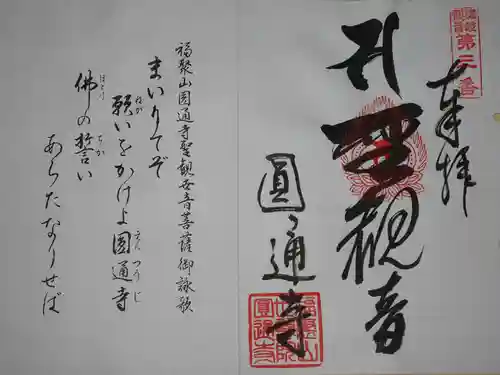 奉拝
聖観音
圓通寺
第三番
福聚山圓通寺聖観世音菩薩御詠歌
まいりてぞ
願いをかけよ圓通寺
ねが
えんつうじ
佛の誓い
ほとけ
ちか
あらたなりせば